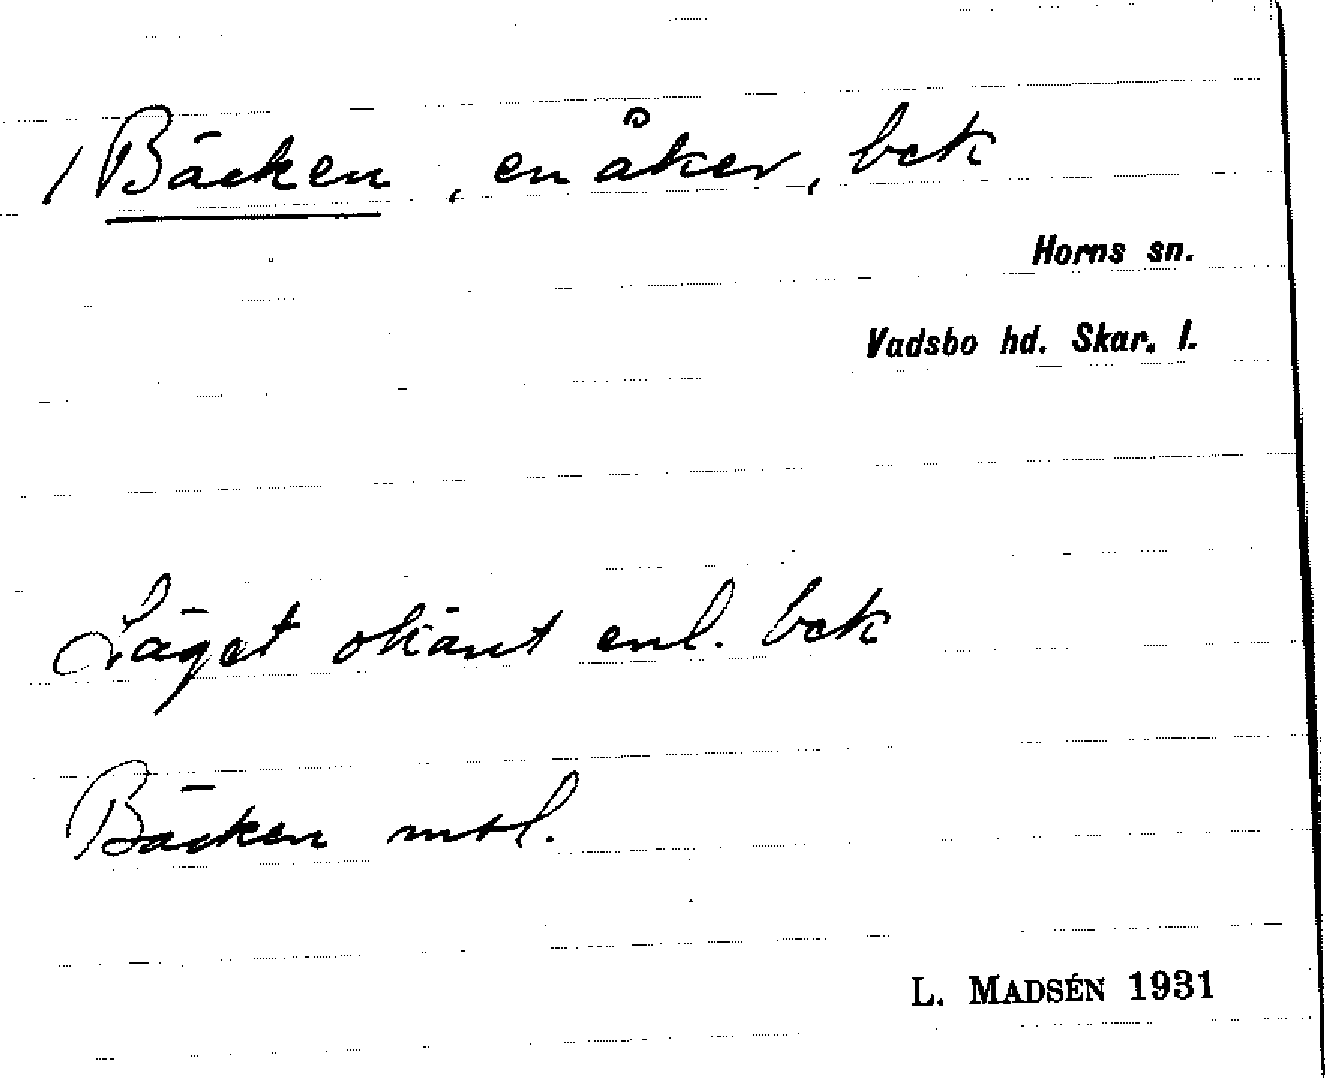 / Bäcken, en åker, bek
Horns sn.
Vadsbo hd. Skar. l.
Läget okänt enl. bek
Bäcken mtl.
L. MADSÉN 1931